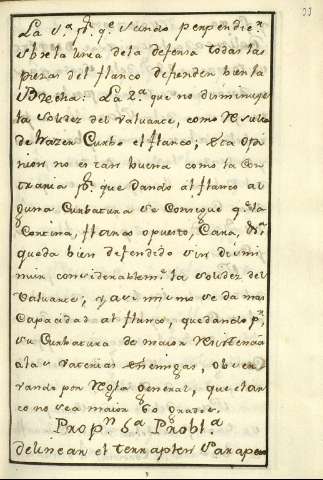 33
La 1.ª pq̃. q.e siendo perpendicu.r
sobre la linea dela defensa todas las
piezas del flanco defienden bien la
Brecha: La 2.ª que no disminuye
la solidez del Valuarte, como Resulta
de hazer Curbo el flanco; Esta opi
nion no es tan buena como la con
traria pq̃. que dando al flanco al
guna Curbatura se Consigue q.e la
Cortina, flanco opuesto, Cara, &.ª
queda bien defendido sin dismi
nuir considerablem.te la solidez del
Valuarte, y asi mismo se da mas
Capacidad al flanco, quedando p.r
su Curbatura de maior Resistencia
alas Vaterias Enemigas, obser
vando por Regla General, que el ar
co no sea maior 60 grados.
Prop.n 5.ª Probl.ª
delinear el terraplen Parapeto